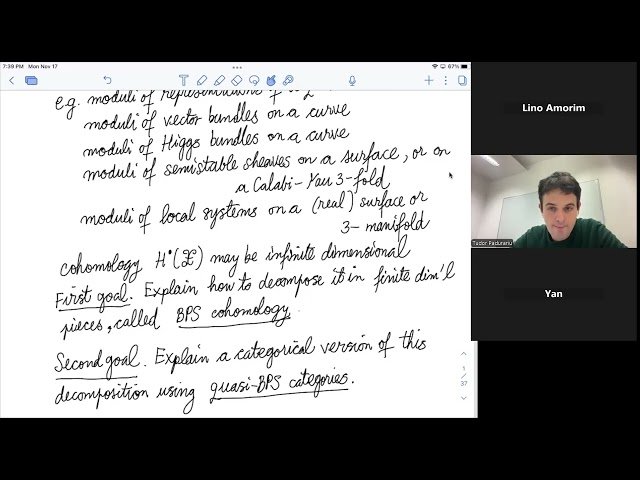 7:39 PM Mon Nov 17
67%
e.g. moduli of representations of a
moduli of vector bundles on a curve
moduli of Higgs bundles on a curve
moduli of semistable sheaves on a surface, or on
a Calabi-Yau 3-fold
moduli of local systems on a (real) surface or
3-manifold
cohomology H•(𝔛) may be infinite dimensional
First goal. Explain how to decompose it in finite dim'l
pieces, called BPS cohomology.
Second goal. Explain a categorical version of this
decomposition using quasi-BPS categories.
1
/
37
Lino Amorim
Tudor Padurariu
Yan